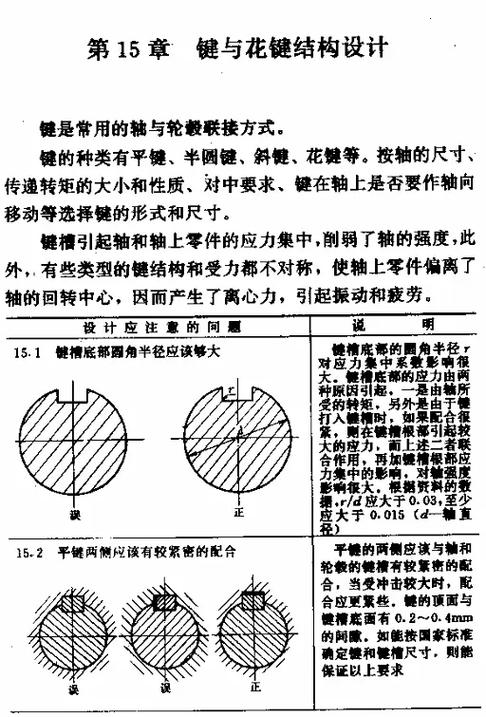 第15章 键与花键结构设计
键是常用的轴与轮毂联接方式。
键的种类有平键、半圆键、斜键、花键等。按轴的尺寸、
传递转矩的大小和性质、对中要求、键在轴上是否要作轴向
移动等选择键的形式和尺寸。
键槽引起轴和轴上零件的应力集中,削弱了轴的强度,此
外,有些类型的键结构和受力都不对称,使轴上零件偏离了
轴的回转中心,因而产生了离心力,引起振动和疲劳。
设计应注意的问题
说 明
15.1 键槽底部圆角半径应该够大
r
d
误
正
键槽底部的圆角半径r
对应力集中系数影响很
大。键槽底部的应力由两
种原因引起,一是由轴所
受的转矩,另外是由于键
打入键槽时,如果配合很
紧,则在键槽根部引起较
大的应力,而上述二者联
合作用,再加键槽根部应
力集中的影响,对轴强度
影响很大。根据资料的数
据,r/d应大于0.03,至少
应大于0.015(d—轴直
径)
15.2 平键两侧应该有较紧密的配合
误
误
正
平键的两侧应该与轴和
轮毂的键槽有较紧密的配
合,当受冲击较大时,配
合应更紧些。键的顶面与
键槽底面有0.2～0.4mm
的间隙。如能按国家标准
确定键和键槽尺寸,则能
保证以上要求